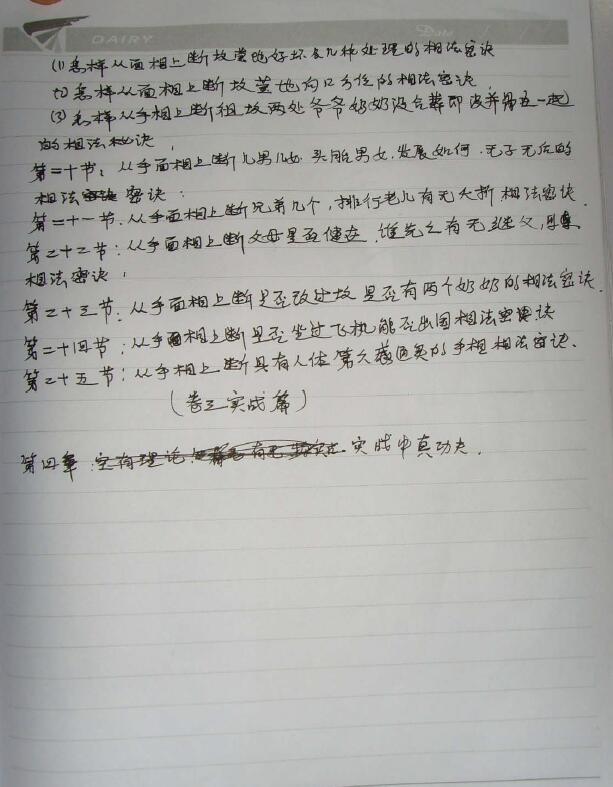 DAIRY
Date
(1)怎样从面相上断坟茔地好坏及几种处理的相法密诀
(2)怎样从面相上断坟茔地向口方位的相法密诀
(3)怎样从手相上断祖坟两处爷爷奶奶没合葬即没并骨在一起
的相法秘诀,
第二十节:从手面相上断几男几女头胎男女,发展如何.无子无后的
相法密诀:
第二十一节.从手面相上断兄弟几个,排行老几有无夭折相法密诀.
第二十二节:从手面相上断父母是否健在,谁先亡有无继父,母
相法密诀:
第二十三节:从手面相上断是否改过坟是否有两个奶奶的相法密诀.
第二十四节:从手面相上断是否坐过飞机能否出国相法密诀
第二十五节:从手相上断具有人体第六感通灵的手相相法密诀.
(卷三实战篇)
第四章:空有理论 实战中真功夫.